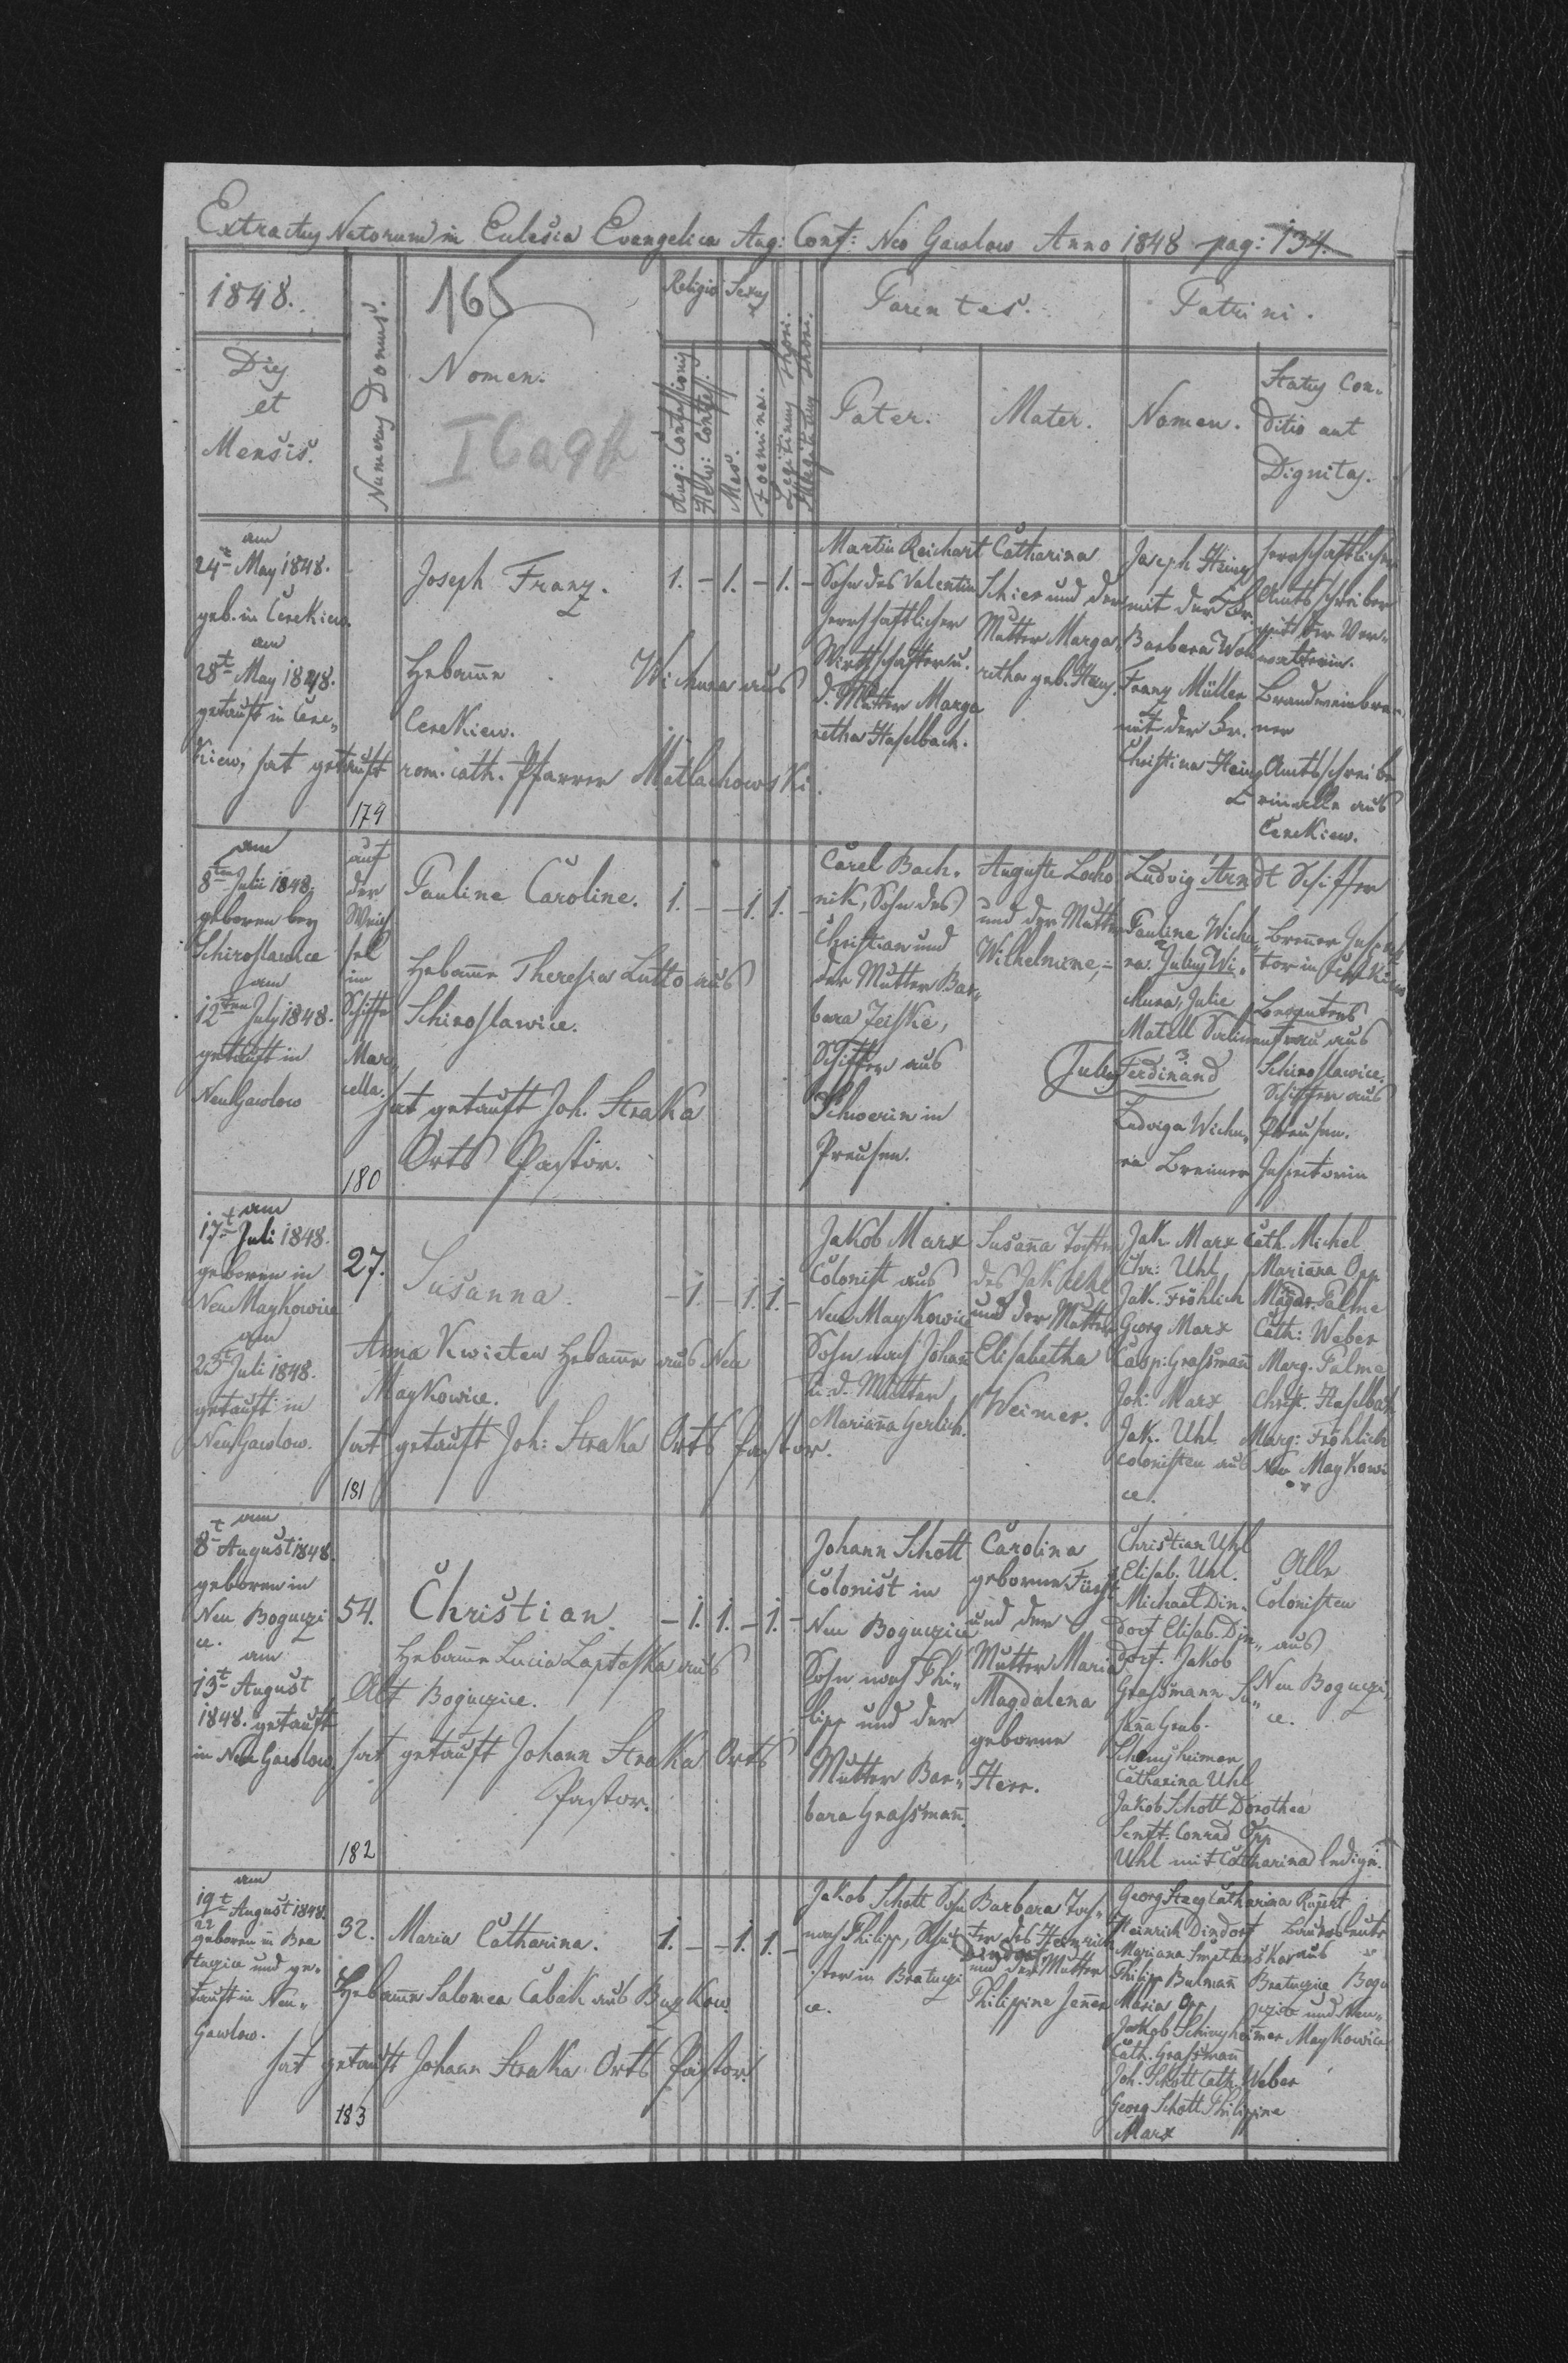 Extractus Natorum in Eclesia Evangelica Aug: Conf: Neo Gawlow Anno 1848 pag: 134.
1848.
Dies
et
Mensis.
Numerus Domus.
165
Nomen.
I 6a9b
Religio
Sexus
Aug: Confessionis
Helv: Confess.
Mas.
Foemina.
Legitimus Thori.
Illegitimus Thori.
Parintes.
Pater.
Mater.
Patrini.
Nomen.
Status Con-
ditio aut
Dignitas.
am
24t May 1848.
geb. in CereKiew.
am
28t May 1848.
getauft in Cere„
Kiew, hat getauft rom. cath. Pfarrer Matlachowski.
179
Joseph Franz.
Hebamme Wichura aus
CereKiew.
1. - 1. - 1. -
Martin Reichart
Sohn des Valentin
herrschaftlicher
Wirthschafter u.
d. Mutter Marga
retha Haselbach.
Catharina
Schier und der
Mutter Marga„
retha geb. Haus.
Joseph Heinz
mit der Fr.
Barbara
Franz Müller
mit der Fr.
Christina Heinz
herrschaftlicher
Amtsschreiber
mit der Ver„
walterin.
Brandweinbren„
ner
Amtsschreibe
rin alle aus
CereKiew.
am
8ten Julii 1848.
geboren bey
Schiroslawice
am
12ten July 1848.
getauft in
Neu Gawlow
auf
der
Weich
sel
im
Schiffe
Mar„
cella.
180
Pauline Caroline.
Hebamme Theresia Lutto aus
Schiroslawice.
hat getauft Joh. Straka
Orts Pastor.
1. - - 1. 1. -
Carel Bach„
nik, Sohn des
Christian und
der Mutter Bar„
bara Jeiske,
Schiffer aus
Schwerin in
Preusen.
Auguste Locho
und der Mutter
Wilhelmine,
Ludvig Arndt Schiffer
Pauline Wichu„
ra. July Wi„
Mura, Julie
Matell
July Ferdinand
Ludviga Wichu„
ra Brenner Inspectorin
Brenner Inspek
tor in
Beamtens
frau aus
Schiroslawice.
Schiffer aus
Preusen.
am
17t Juli 1848.
geboren in
Neu MayKowice
am
25t Juli 1848.
getauft in
Neu Gawlow.
27.
181
Susanna.
Anna Kwieten Hebamme aus Neu
MayKowice.
hat getauft Joh: Straka Orts Pastor.
- 1. - 1. 1. -
Jakob Marx
Colonist aus
Neu MayKowice
Sohn nach Johann
u. d. Mutter
Marianna Gerlich.
Susanna Tochter
des Jak Uhl
und der Mutter
Elisabetha
Weimer.
Jak. Marx
Chr: Uhl
Jak. Fröhlich
Georg Marx
Casp: Graßmann
Joh: Marx
Jak. Uhl
Colonisten aus Neu MayKowi
ce.
Cath. Michel
Marianna Opp
Magda. Palme
Cath: Weber
Marg. Palme
Christ. Haselbach
Marg: Fröhlich
am
8t August 1848.
geboren in
Neu Boguczi
ce.
am
13t August
1848. getauft
in Neu Gawlow
54.
182
Christian.
Hebamme Lucia Laptaska aus
Alt Boguczice.
hat getauft Johann Straka Orts
Pastor.
- 1. 1. - 1. -
Johann Schott
Colonist in
Neu Boguczice
Sohn nach Phi„
lipp und der
Mutter Bar„
bara Grassmann.
Carolina
geborne Fürst
und der
Mutter Maria
Magdalena
geborne
Herr.
Christian Uhl
Elisab. Uhl.
Michael Din„
dorf Elisab. Din„
dorf. Jakob
Grassmann Su„
sanna Grub.
Catharina Uhl
Jakob Schott Dorothea
Senft. Conrad Opp
Uhl mit Catharina ledige.
Alle
Colonisten
aus
Neu Boguczi„
ce.
am
19t August 1848.
22
geboren in Bra
tuczice und ge„
tauft in Neu„
Gawlow.
32.
183
Maria Catharina.
Hebamme Salomea Cabak aus BuzKow.
hat getauft Johann Straka Orts Pastor.
1. - - 1. 1. -
Jakob Schott Sohn
nach Philipp,
in Bratuczi
ce.
Barbara Toch„
ter des Heinrich
Dindorf
und der Mutter
Philippine Jenner
Georg Staeg Catharina Rupert
Heinrich Dindorf
Mariana Smetanska
Philipp Bulmann
Maria Opp
Jakob Schinzheimer
Cath. Grassmann
Joh. Schott Cath. Weber
Georg Schott Philippina
Marx
Bauersleute
aus
Bratuczice Bogu
czice und Neu„
MayKowice